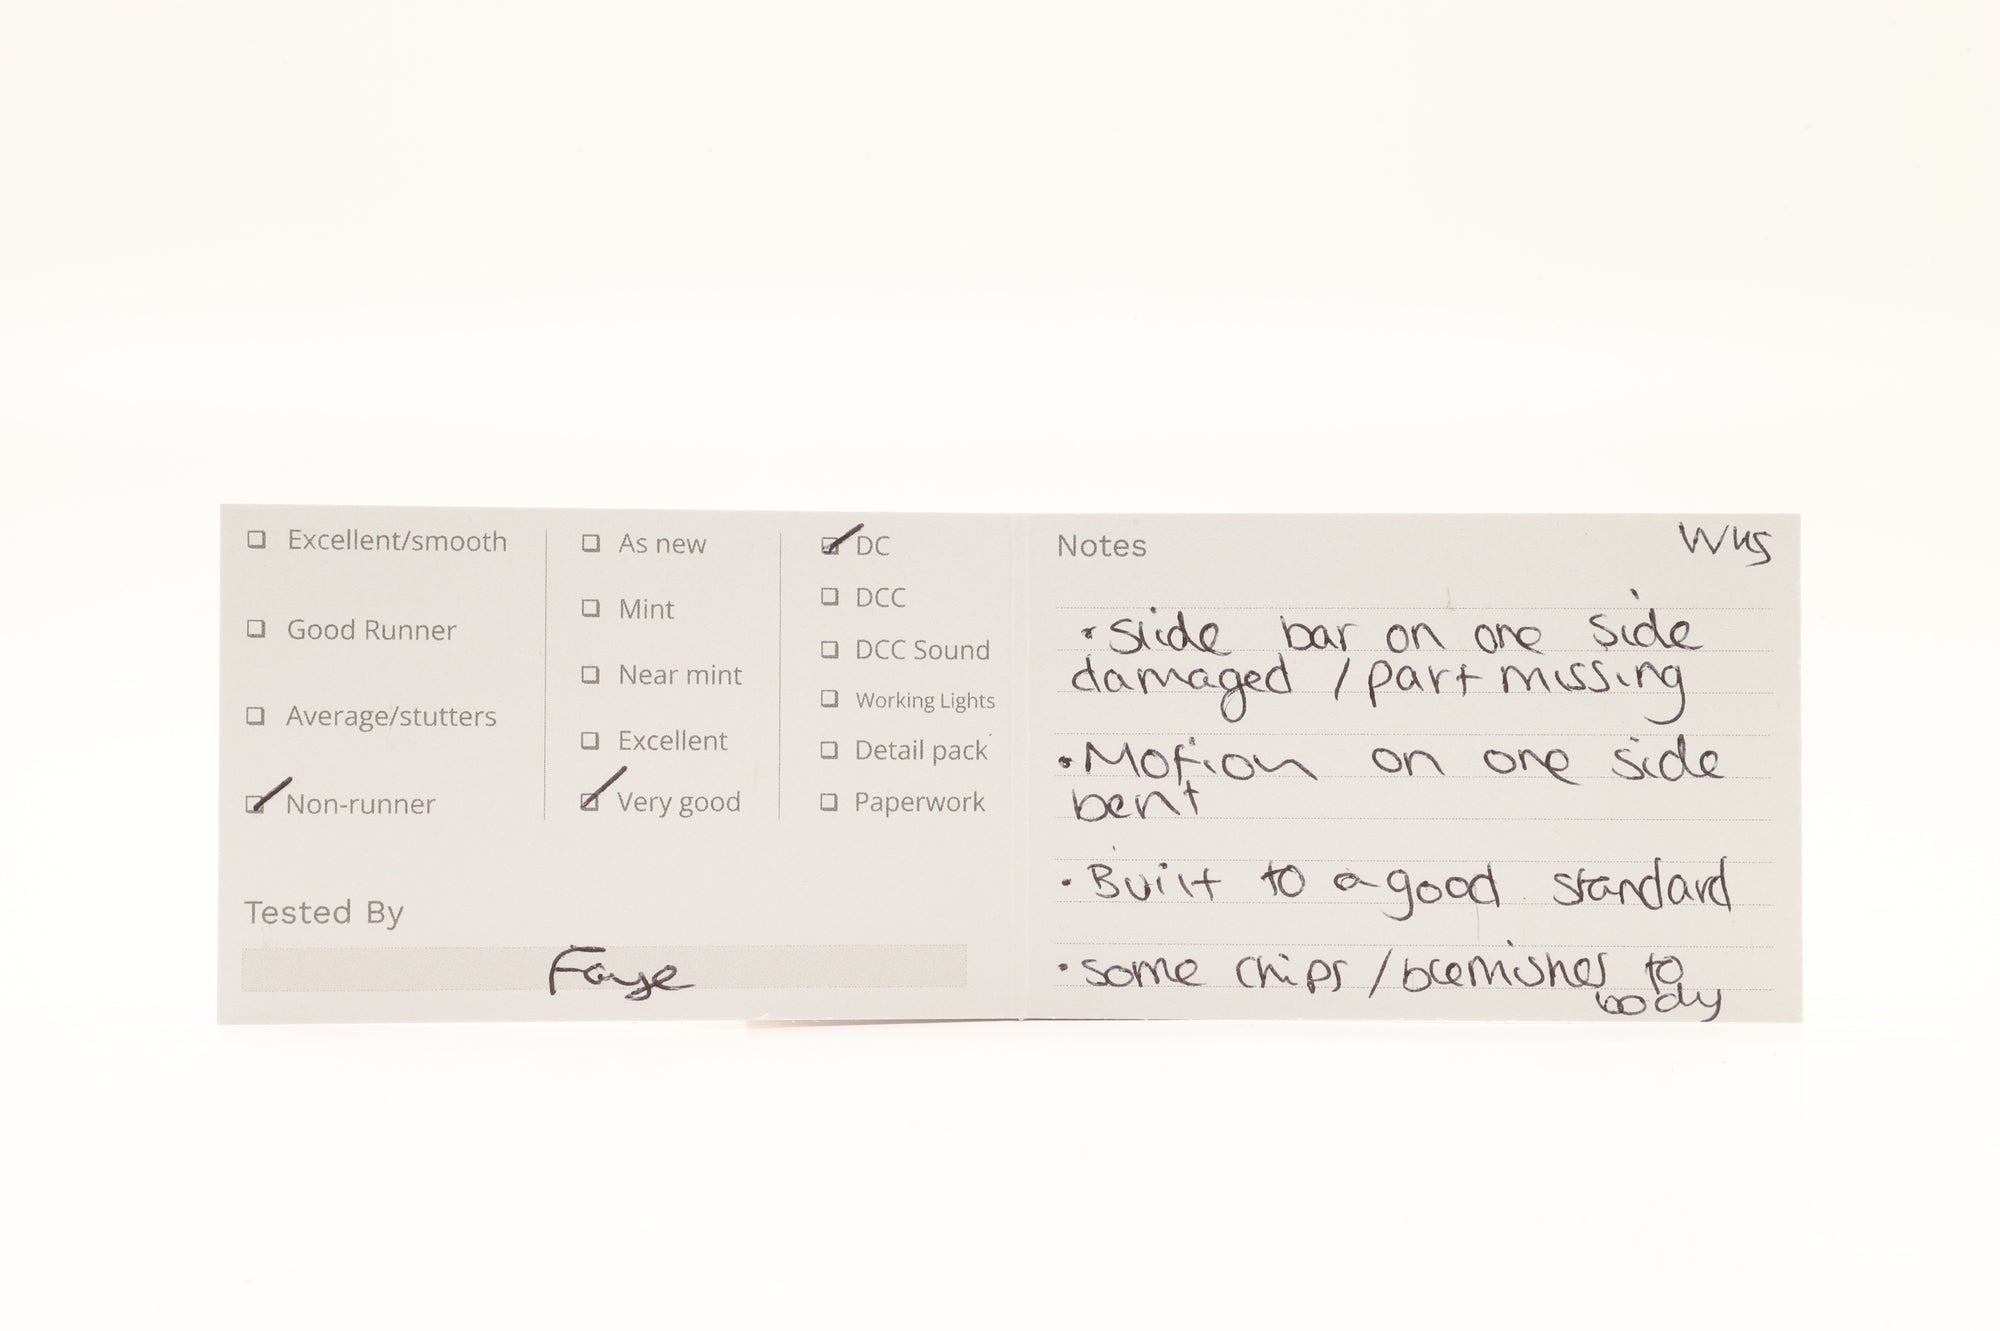 Excellent/smooth
Good Runner
Average/stutters
Non-runner
As new
Mint
Near mint
Excellent
Very good
DC
DCC
DCC Sound
Working Lights
Detail pack
Paperwork
Tested By
Faye
Notes
• Slide bar on one side
damaged / part missing
• Motion on one side
bent
• Built to a good standard
• some chips / blemishes to
body